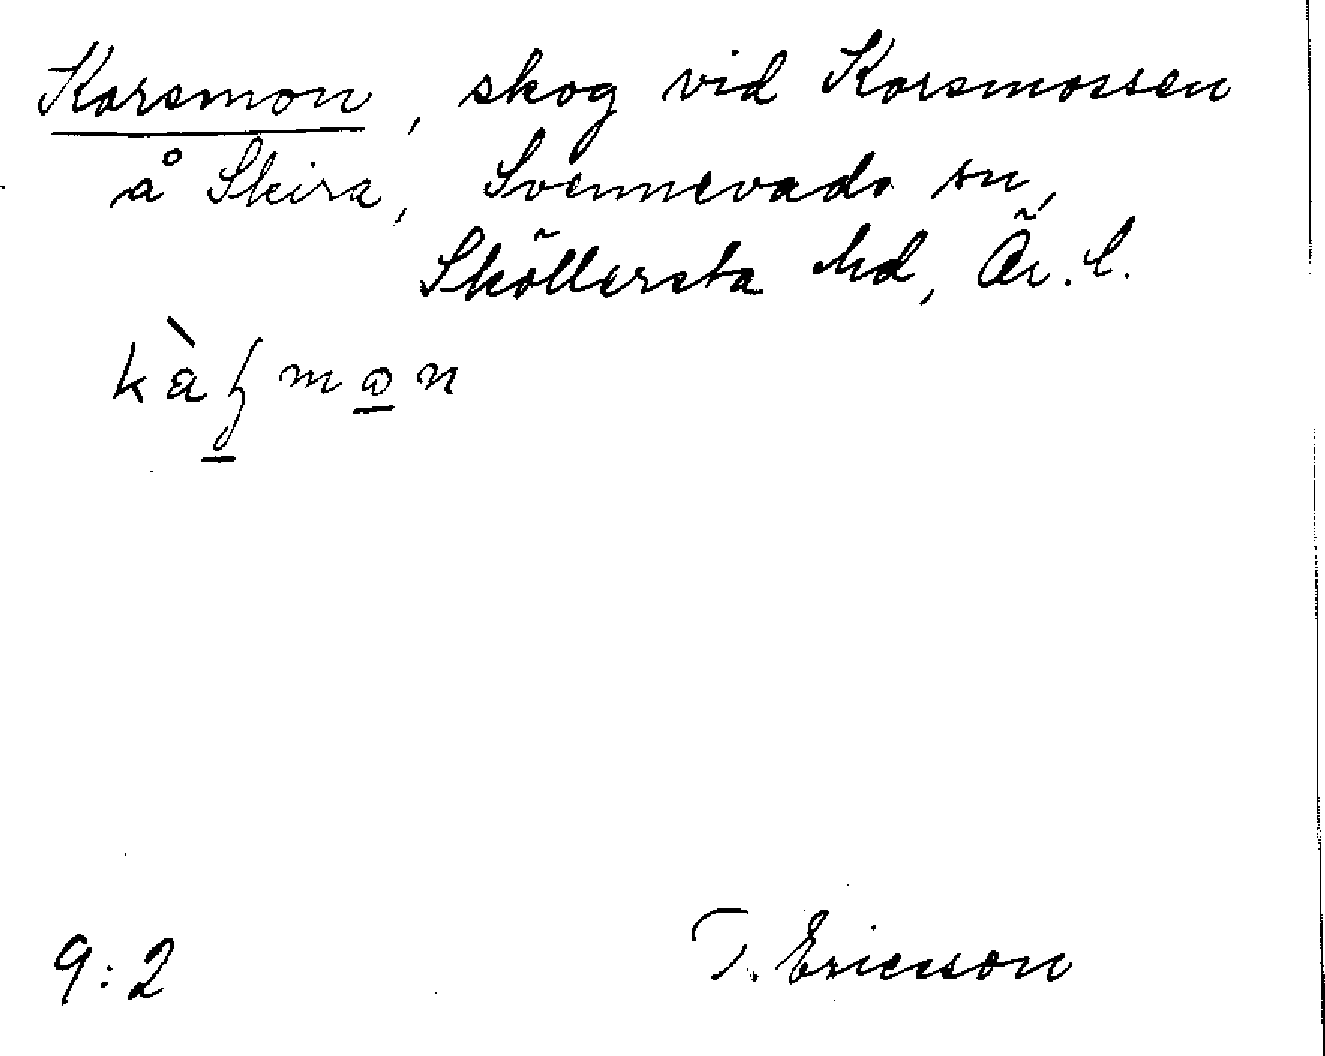 Korsmon, skog vid Korsmossen
å Skira, Svennevads sn,
Sköllersta hd, Ör. l.
9:2
T. Ericsson